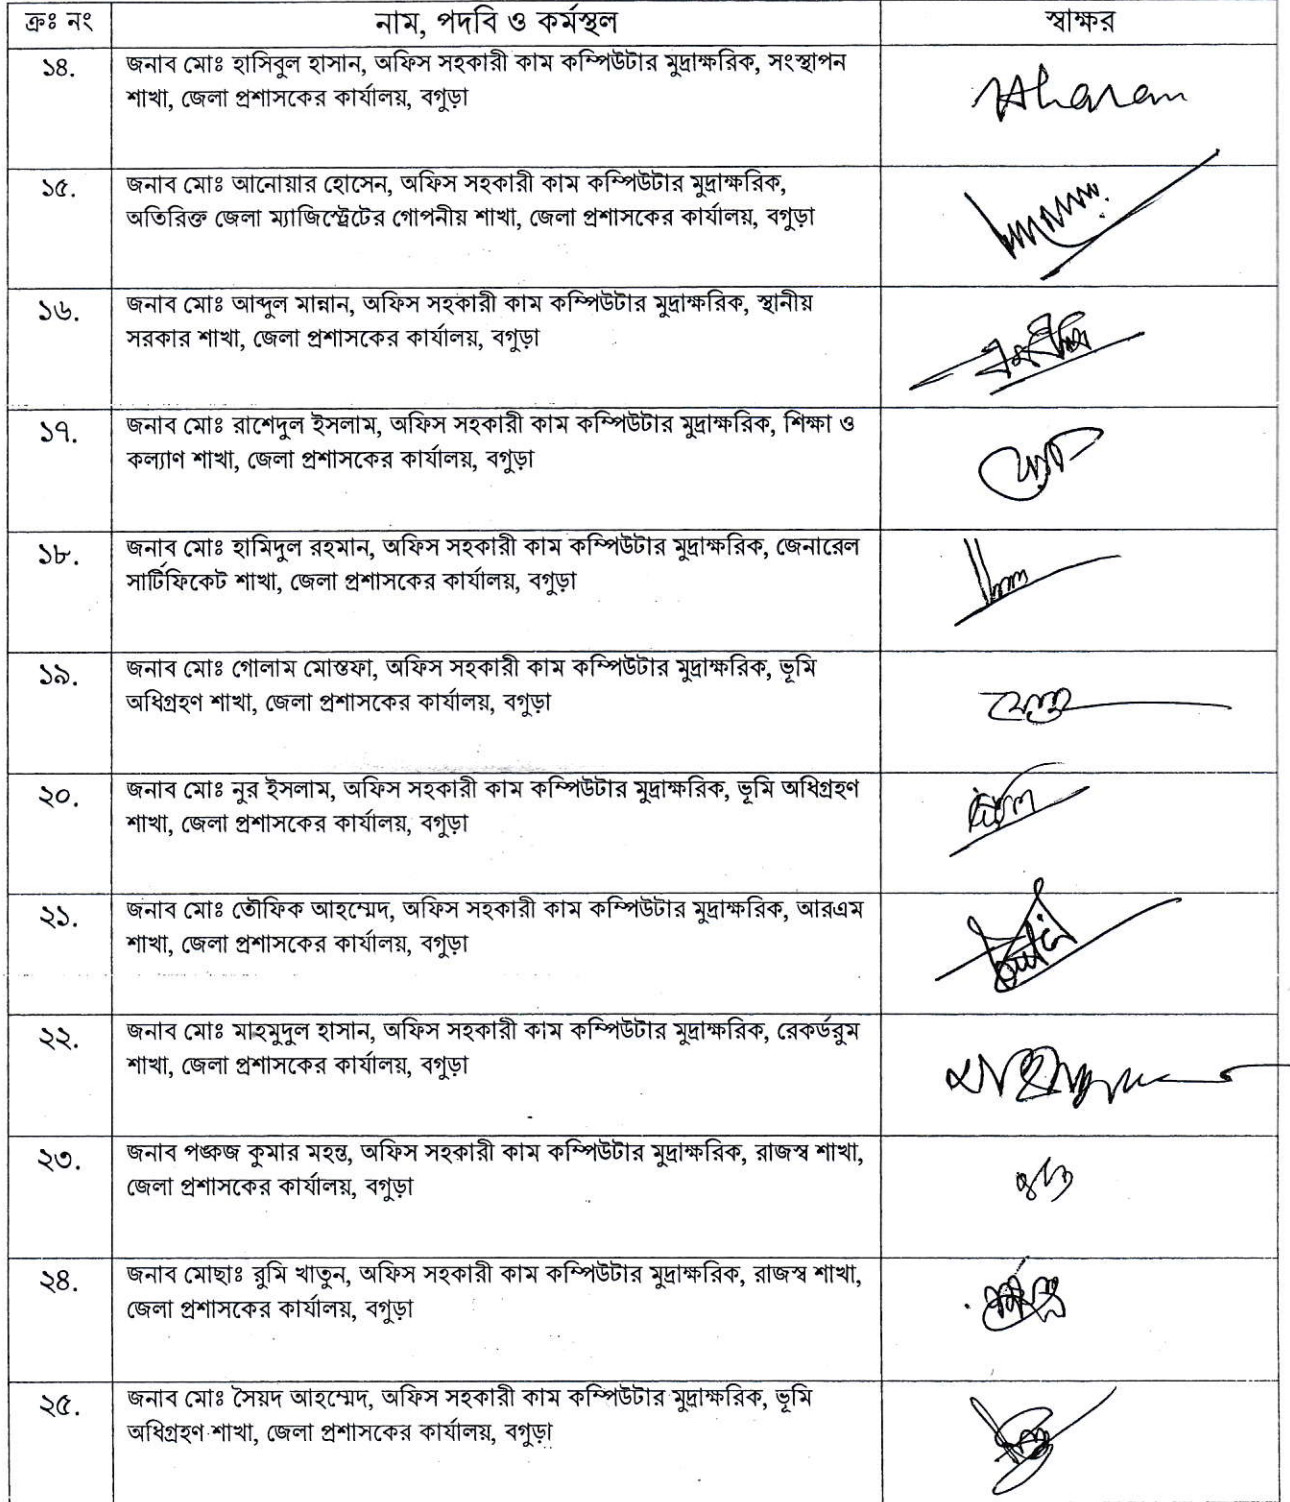 ক্রঃ নং নাম, পদবি ও কর্মস্থল স্বাক্ষর
১৪. জনাব মোঃ হাসিবুল হাসান, অফিস সহকারী কাম কম্পিউটার মুদ্রাক্ষরিক, সংস্থাপন
শাখা, জেলা প্রশাসকের কার্যালয়, বগুড়া
১৫. জনাব মোঃ আনোয়ার হোসেন, অফিস সহকারী কাম কম্পিউটার মুদ্রাক্ষরিক,
অতিরিক্ত জেলা ম্যাজিস্ট্রেটের গোপনীয় শাখা, জেলা প্রশাসকের কার্যালয়, বগুড়া
১৬. জনাব মোঃ আব্দুল মান্নান, অফিস সহকারী কাম কম্পিউটার মুদ্রাক্ষরিক, স্থানীয়
সরকার শাখা, জেলা প্রশাসকের কার্যালয়, বগুড়া
১৭. জনাব মোঃ রাশেদুল ইসলাম, অফিস সহকারী কাম কম্পিউটার মুদ্রাক্ষরিক, শিক্ষা ও
কল্যাণ শাখা, জেলা প্রশাসকের কার্যালয়, বগুড়া
১৮. জনাব মোঃ হামিদুল রহমান, অফিস সহকারী কাম কম্পিউটার মুদ্রাক্ষরিক, জেনারেল
সার্টিফিকেট শাখা, জেলা প্রশাসকের কার্যালয়, বগুড়া
১৯. জনাব মোঃ গোলাম মোস্তফা, অফিস সহকারী কাম কম্পিউটার মুদ্রাক্ষরিক, ভূমি
অধিগ্রহণ শাখা, জেলা প্রশাসকের কার্যালয়, বগুড়া
২০. জনাব মোঃ নুর ইসলাম, অফিস সহকারী কাম কম্পিউটার মুদ্রাক্ষরিক, ভূমি অধিগ্রহণ
শাখা, জেলা প্রশাসকের কার্যালয়, বগুড়া
২১. জনাব মোঃ তৌফিক আহম্মেদ, অফিস সহকারী কাম কম্পিউটার মুদ্রাক্ষরিক, আরএম
শাখা, জেলা প্রশাসকের কার্যালয়, বগুড়া
২২. জনাব মোঃ মাহমুদুল হাসান, অফিস সহকারী কাম কম্পিউটার মুদ্রাক্ষরিক, রেকর্ডরুম
শাখা, জেলা প্রশাসকের কার্যালয়, বগুড়া
২৩. জনাব পঙ্কজ কুমার মহন্ত, অফিস সহকারী কাম কম্পিউটার মুদ্রাক্ষরিক, রাজস্ব শাখা,
জেলা প্রশাসকের কার্যালয়, বগুড়া
২৪. জনাব মোছাঃ রুমি খাতুন, অফিস সহকারী কাম কম্পিউটার মুদ্রাক্ষরিক, রাজস্ব শাখা,
জেলা প্রশাসকের কার্যালয়, বগুড়া
২৫. জনাব মোঃ সৈয়দ আহম্মেদ, অফিস সহকারী কাম কম্পিউটার মুদ্রাক্ষরিক, ভূমি
অধিগ্রহণ শাখা, জেলা প্রশাসকের কার্যালয়, বগুড়া